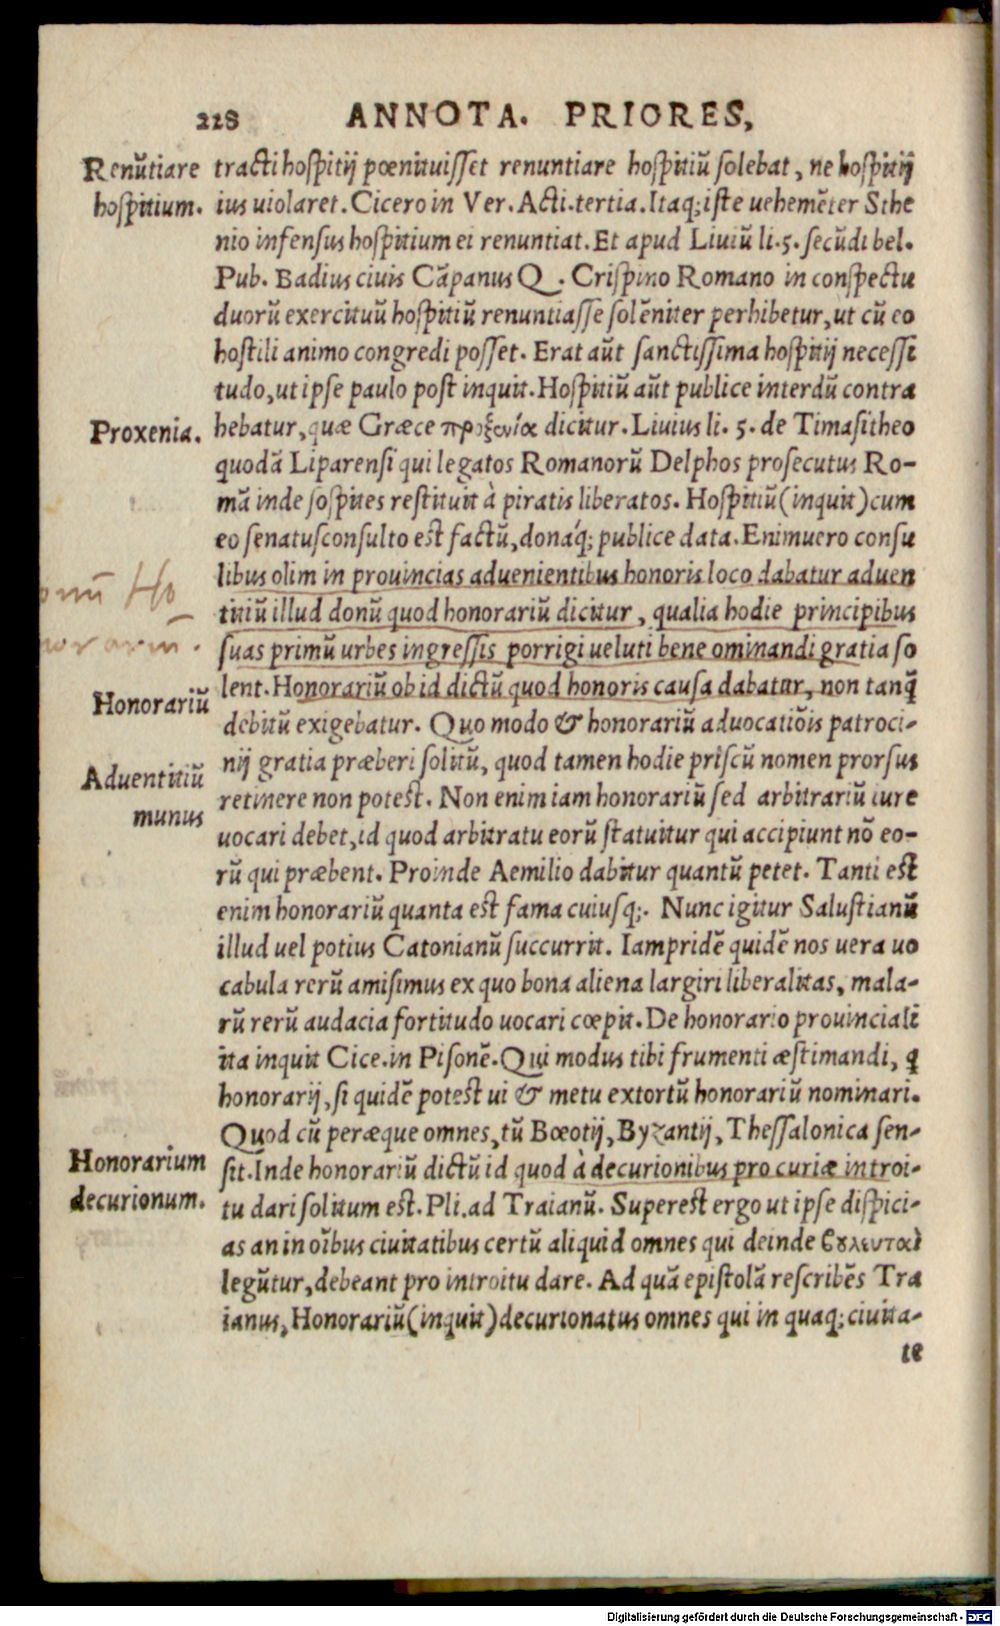 218 ANNOTA. PRIORES,
Renũtiare
hospitium.
tracti hospitij pœnituisset renuntiare hospitiũ solebat, ne hospitij
ius uiolaret. Cicero in Ver. Acti. tertia. Itaq; iste uehemẽter Sthe
nio infensus hospitium ei renuntiat. Et apud Liuiũ li. 5. secũdi bel.
Pub. Badius ciuis Cãpanus Q. Crispino Romano in conspectu
duorũ exercituũ hospitiũ renuntiasse solẽniter perhibetur, ut cũ eo
hostili animo congredi posset. Erat aũt sanctissima hospitij necessi
tudo, ut ipse paulo post inquit. Hospitiũ aũt publice interdũ contra
Proxenia.
hebatur, quæ Græce προξενία dicitur. Liuius li. 5. de Timasitheo
quodã Liparensi qui legatos Romanorũ Delphos prosecutus Ro-
mã inde sospites restituit à piratis liberatos. Hospitiũ (inquit) cum
eo senatusconsulto est factũ, donáq; publice data. Enimuero consu
libus olim in prouincias aduenientibus honoris loco dabatur aduen
titiũ illud donũ quod honorariũ dicitur, qualia hodie principibus
suas primũ urbes ingressis porrigi ueluti bene ominandi gratia so
onũ Ho
norariũ.
Honorariũ
lent. Honorariũ ob id dictũ quod honoris causa dabatur, non tanq̃
debitũ exigebatur. Quo modo & honorariũ aduocatiõis patroci-
Aduentitiũ
munus
nij gratia præberi solitũ, quod tamen hodie priscũ nomen prorsus
retinere non potest. Non enim iam honorariũ sed arbitrariũ iure
uocari debet, id quod arbitratu eorũ statuitur qui accipiunt nõ eo-
rũ qui præbent. Proinde Aemilio dabitur quantũ petet. Tanti est
enim honorariũ quanta est fama cuiusq;. Nunc igitur Salustianũ
illud uel potius Catonianũ succurrit. Iampridẽ quidẽ nos uera uo
cabula rerũ amisimus ex quo bona aliena largiri liberalitas, mala-
rũ rerũ audacia fortitudo uocari cœpit. De honorario prouinciali
ita inquit Cice. in Pisonẽ. Qui modus tibi frumenti æstimandi, q̃
honorarij, si quidẽ potest ui & metu extortũ honorariũ nominari.
Quod cũ peræque omnes, tũ Bœotij, Byzantij, Thessalonica sen-
Honorarium
decurionum.
sit. Inde honorariũ dictũ id quod à decurionibus pro curiæ introi-
tu dari solitum est. Pli. ad Traianũ. Superest ergo ut ipse dispici-
as an in oĩbus ciuitatibus certũ aliquid omnes qui deinde βουλευταὶ
legũtur, debeant pro introitu dare. Ad quã epistolã rescribẽs Tra
ianus, Honorariũ (inquit) decurionatus omnes qui in quaq; ciuita-
te
Digitalisierung gefördert durch die Deutsche Forschungsgemeinschaft - DFG